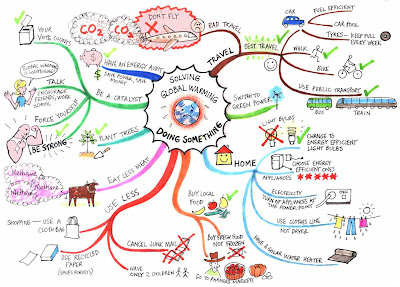 SOLVING
GLOBAL WARMING
DOING SOMETHING
TRAVEL
BAD TRAVEL
DON'T FLY
BEST TRAVEL
CAR
FUEL EFFICIENT
CAR POOL
TYRES - KEEP FULL
EVERY WEEK
WALK
BIKE
USE PUBLIC TRANSPORT
BUS
TRAIN
SWITCH TO
GREEN POWER
HOME
LIGHT BULBS
CHANGE TO
ENERGY EFFICIENT
LIGHT BULBS
APPLIANCES
CHOOSE ENERGY
EFFICIENT ONES
ELECTRICITY
TURN OF APPLIANCES AT
THE POWER POINT
USE CLOTHES LINE
NOT DRYER
HAVE A SOLAR WATER HEATER
BUY LOCAL
FOOD
BUY FRESH FOOD
NOT FROZEN
GO TO FARMERS MARKETS
USE LESS
CANCEL JUNK MAIL
HAVE
ONLY 2 CHILDREN
USE RECYCLED
PAPER
(SAVES FORESTS)
SHOPPING - USE A
CLOTH BAG
EAT LESS MEAT
Methane
Methane
Methane
PLANT TREES
BE A CATALYST
YOUR
VOTE COUNTS
TALK
GLOBAL WARMING
IS HAPPENING
ENCOURAGE
FRIENDS, WORK
SCHOOL
FORCE YOURSELF
BE STRONG
HAVE AN ENERGY AUDIT
SAVE POWER, SAVE
MONEY
CO2
CO2